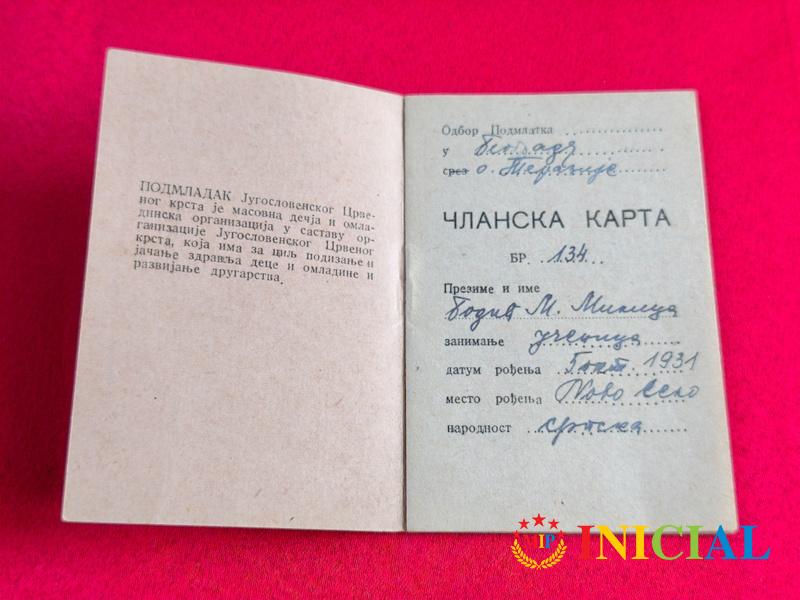 ПОДМЛАДАК Југословенског Црве-
ног крста је масовна дечја и омла-
динска организација у саставу ор-
ганизације Југословенског Црвеног
крста, која има за циљ подизање и
јачање здравља деце и омладине и
развијање другарства.
Одбор Подмлатка
у Београду
срез о. Теразије
ЧЛАНСКА КАРТА
БР. 134
Презиме и име
М. Милица
занимање ученица
датум рођења 1931
место рођења Ново Село
народност српска
VIP INICIAL